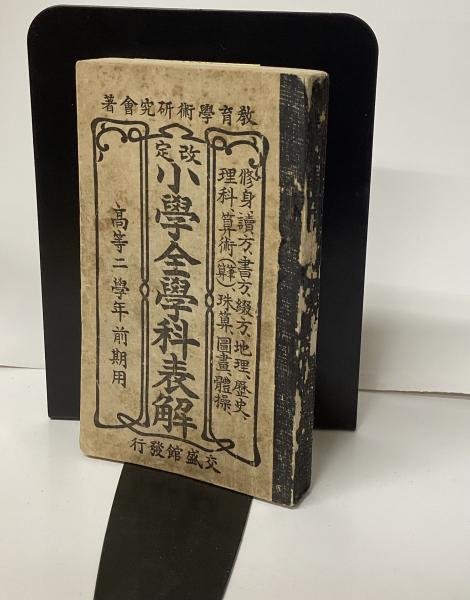 教育學術研究會著
修身、讀方、書方、綴方、地理、歷史、
理科、算術(筆算)、珠算、圖畫、體操
改定
小學全學科表解
高等二學年前期用
交盛館發行